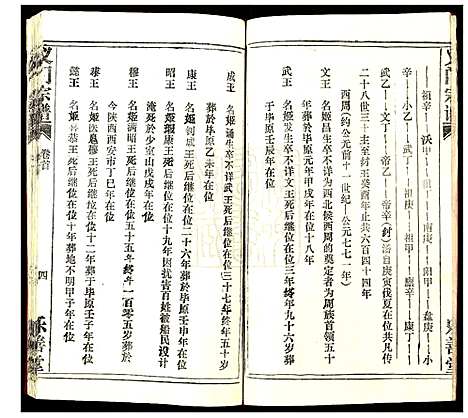 祖辛——沃甲——祖丁——南庚——阳甲——盘庚——小
辛——小乙——武丁——祖庚——祖甲——廪辛——康丁——
武乙——文丁——帝乙——帝辛(纣)汤自庚寅伐夏在位共凡传
二十八世三十主至纣王癸酉年止共六百四十四年
西周(约公元前十一世纪——公元七七一年)
文王 名姬昌生卒不详文王为西北候西周的奠定者为周族首领五十
年葬於毕原元年甲戌年在位
武王 名姬发生卒不详文王死后继位在位三年终年九十六岁葬
于毕原壬辰年在位
成王 名姬诵生卒不详武王死后继位在位三十七年终年五十岁
葬於毕原乙未年在位
康王 名姬钊成王死后继位在位二十六年葬于毕原壬甲年在位
昭王 名姬瑕康王死后继位在位十九年因扰害百姓被船民设计
淹死於少室山戌戌年在位
穆王 名姬满昭王死后继位在位五十五年终年一百零五岁葬於
今陕西西安市丁巳年在位
共王 名姬医扈穆王死后继位在位十二年在位
懿王 名姬囏恭王死后继位在位十年葬地不明甲子年在位
义门宗谱
卷首
四
乐善堂